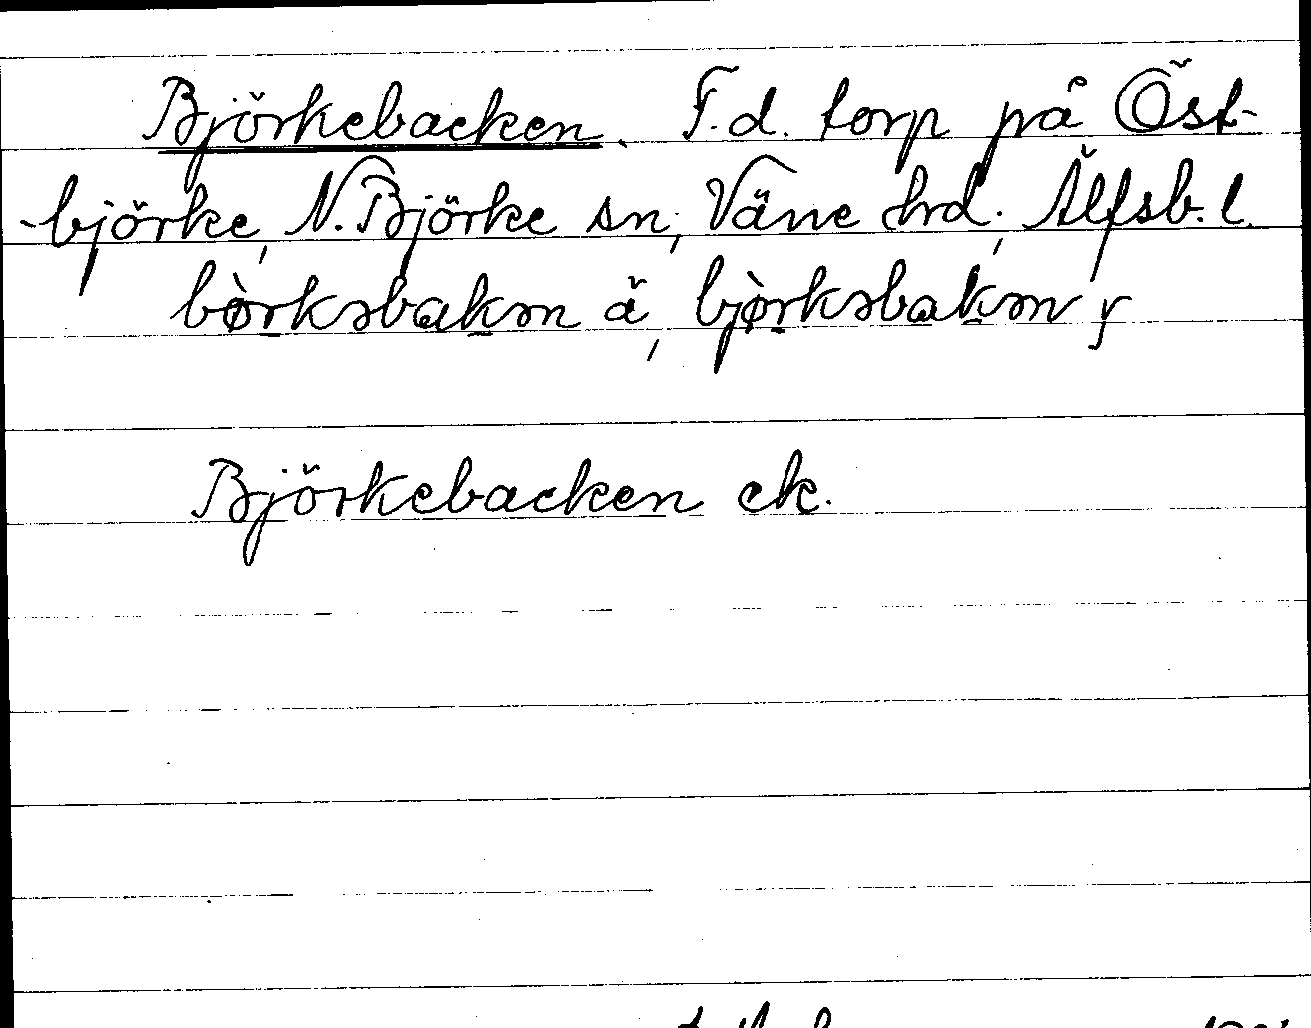 Björkebacken. F.d. torp på Öst-
-björke, N. Björke sn, Väne hrd, Älfsb. l.
bòrkəbakən ä, bjòrkəbakən y
Björkebacken ek.